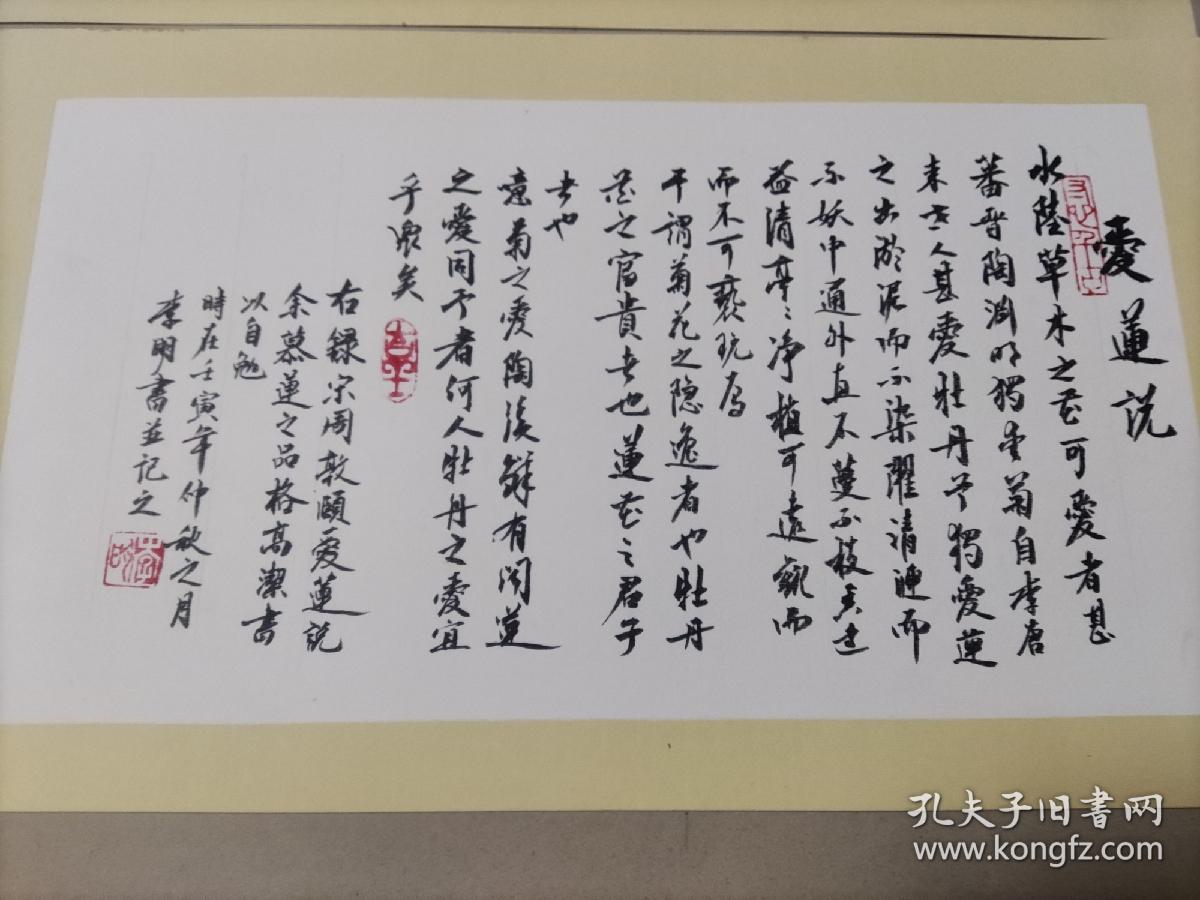 愛蓮說
水陸草木之花可愛者甚
蕃晉陶淵明獨愛菊自李唐
来世人甚愛牡丹予獨愛蓮
之出於泥而不染濯清漣而
不妖中通外直不蔓不枝香遠
益清亭〻淨植可遠觀而
而不可褻玩焉
予謂菊花之隐逸者也牡丹
花之富貴者也蓮花之君子
者也
噫菊之愛陶後鮮有聞蓮
之愛同予者何人牡丹之愛宜
乎眾矣
右録宗周敦頤爱蓮説
余慕蓮之品格高潔書
以自勉
時在壬寅年仲秋之月
李明書並記之
孔夫子旧书网
www.kongfz.com